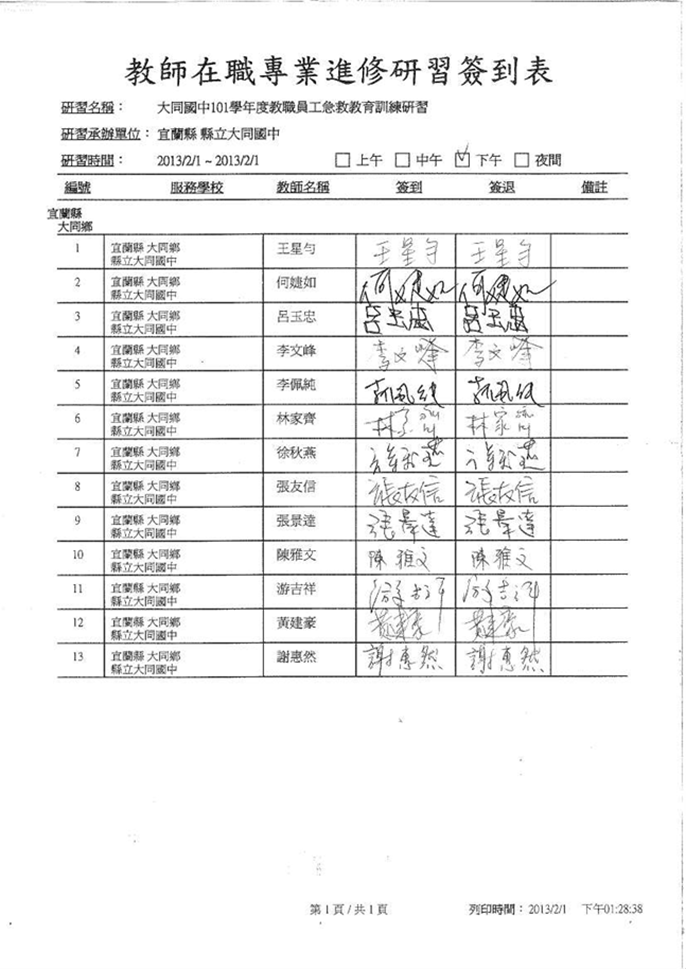 教師在職專業進修研習簽到表
研習名稱： 大同國中101學年度教職員工急救教育訓練研習
研習承辦單位： 宜蘭縣 縣立大同國中
研習時間： 2013/2/1 ~ 2013/2/1 □ 上午 □ 中午 ☑ 下午 □ 夜間
編號 服務學校 教師名稱 簽到 簽退 備註
宜蘭縣
大同鄉
1 宜蘭縣 大同鄉 王星勻 王星勻 王星勻
縣立大同國中
2 宜蘭縣 大同鄉 何婕如 何婕如 何婕如
縣立大同國中
3 宜蘭縣 大同鄉 呂玉忠 呂玉忠 呂玉忠
縣立大同國中
4 宜蘭縣 大同鄉 李文峰 李文峰 李文峰
縣立大同國中
5 宜蘭縣 大同鄉 李佩純 李佩純 李佩純
縣立大同國中
6 宜蘭縣 大同鄉 林家齊 林家齊 林家齊
縣立大同國中
7 宜蘭縣 大同鄉 徐秋燕 徐秋燕 徐秋燕
縣立大同國中
8 宜蘭縣 大同鄉 張友信 張友信 張友信
縣立大同國中
9 宜蘭縣 大同鄉 張景達 張景達 張景達
縣立大同國中
10 宜蘭縣 大同鄉 陳雅文 陳雅文 陳雅文
縣立大同國中
11 宜蘭縣 大同鄉 游吉祥 游吉祥 游吉祥
縣立大同國中
12 宜蘭縣 大同鄉 黃建豪 黃建豪 黃建豪
縣立大同國中
13 宜蘭縣 大同鄉 謝惠然 謝惠然 謝惠然
縣立大同國中
第1頁/共1頁 列印時間：2013/2/1 下午01:28:38